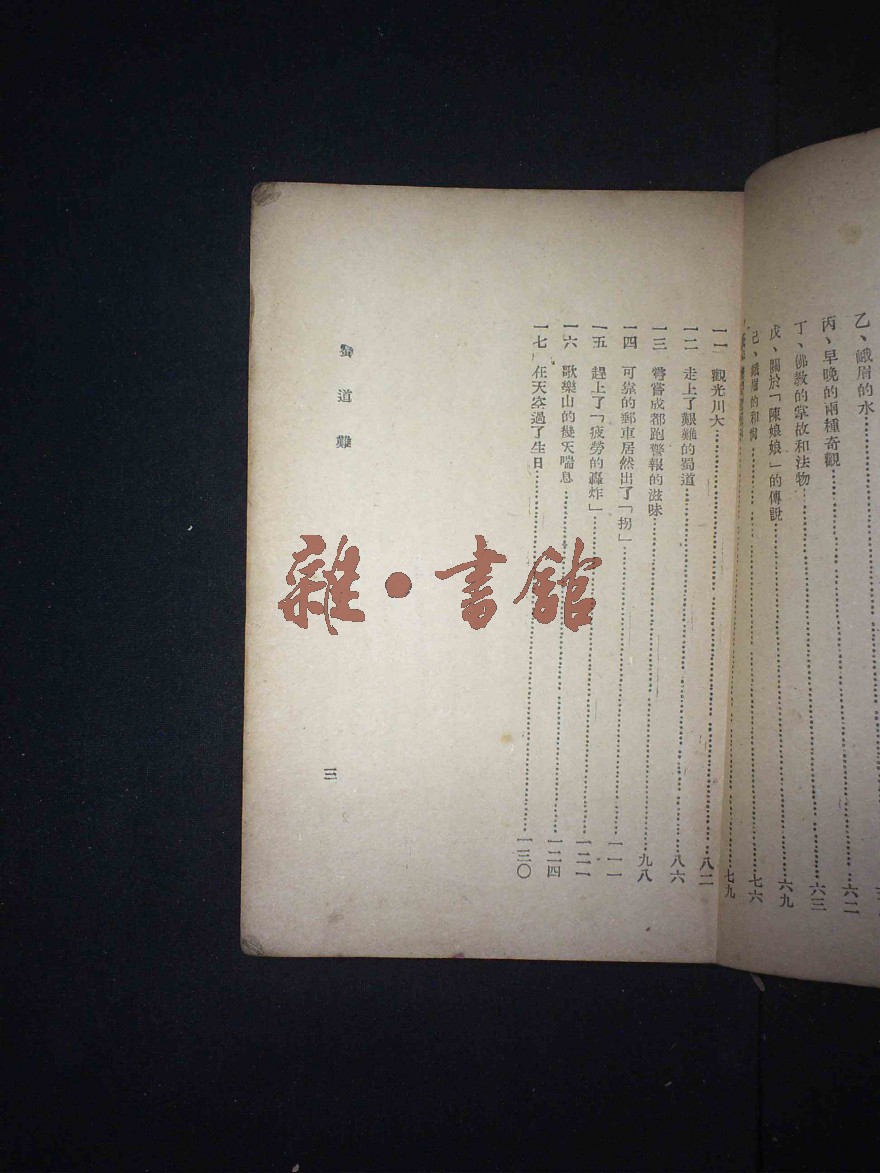 乙、峨眉的水……六二
丙、早晚的兩種奇觀……六三
丁、佛教的掌故和法物……六九
戊、關於「陳娘娘」的傳說……七六
己、峨眉的和尚……七九
一一　觀光川大……八二
一二　走上了艱難的蜀道……八六
一三　嘗嘗成都跑警報的滋味……九八
一四　可靠的郵車居然出了「拐」……一一一
一五　趕上了「疲勞的轟炸」……一二一
一六　歌樂山的幾天喘息……一二四
一七　在天空過了生日……一三〇
蜀道難
三
雜·書館